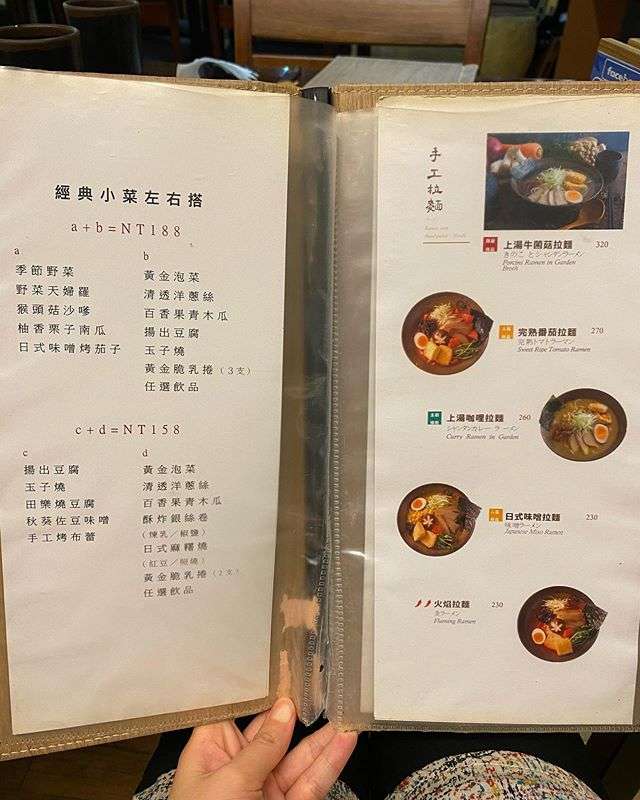 經典小菜左右搭
a+b=NT188
a
季節野菜
野菜天婦羅
猴頭菇沙嗲
柚香栗子南瓜
日式味噌烤茄子
b
黃金泡菜
清透洋蔥絲
百香果青木瓜
揚出豆腐
玉子燒
黃金脆乳捲（3支）
任選飲品
c+d=NT158
c
揚出豆腐
玉子燒
田樂燒豆腐
秋葵佐豆味噌
手工烤布蕾
d
黃金泡菜
清透洋蔥絲
百香果青木瓜
酥炸銀絲卷
（煉乳／椒鹽）
日式麻糬燒
（紅豆／
黃金脆乳捲（2支）
任選飲品
facebook
手工拉麵
上湯牛菌菇拉麵 320
きのことシャンタンラーメン
Porcini Ramen in Garden
Broth
完熟番茄拉麵 270
完熟トマトラーマン
Sweet Ripe Tomato Ramen
上湯咖哩拉麵 260
シャンタンカレーラーメン
Curry Ramen in Garden
日式味噌拉麵 230
味噌ラーメン
Japanese Miso Ramen
火焰拉麵 230
炎ラーメン
Flaming Ramen